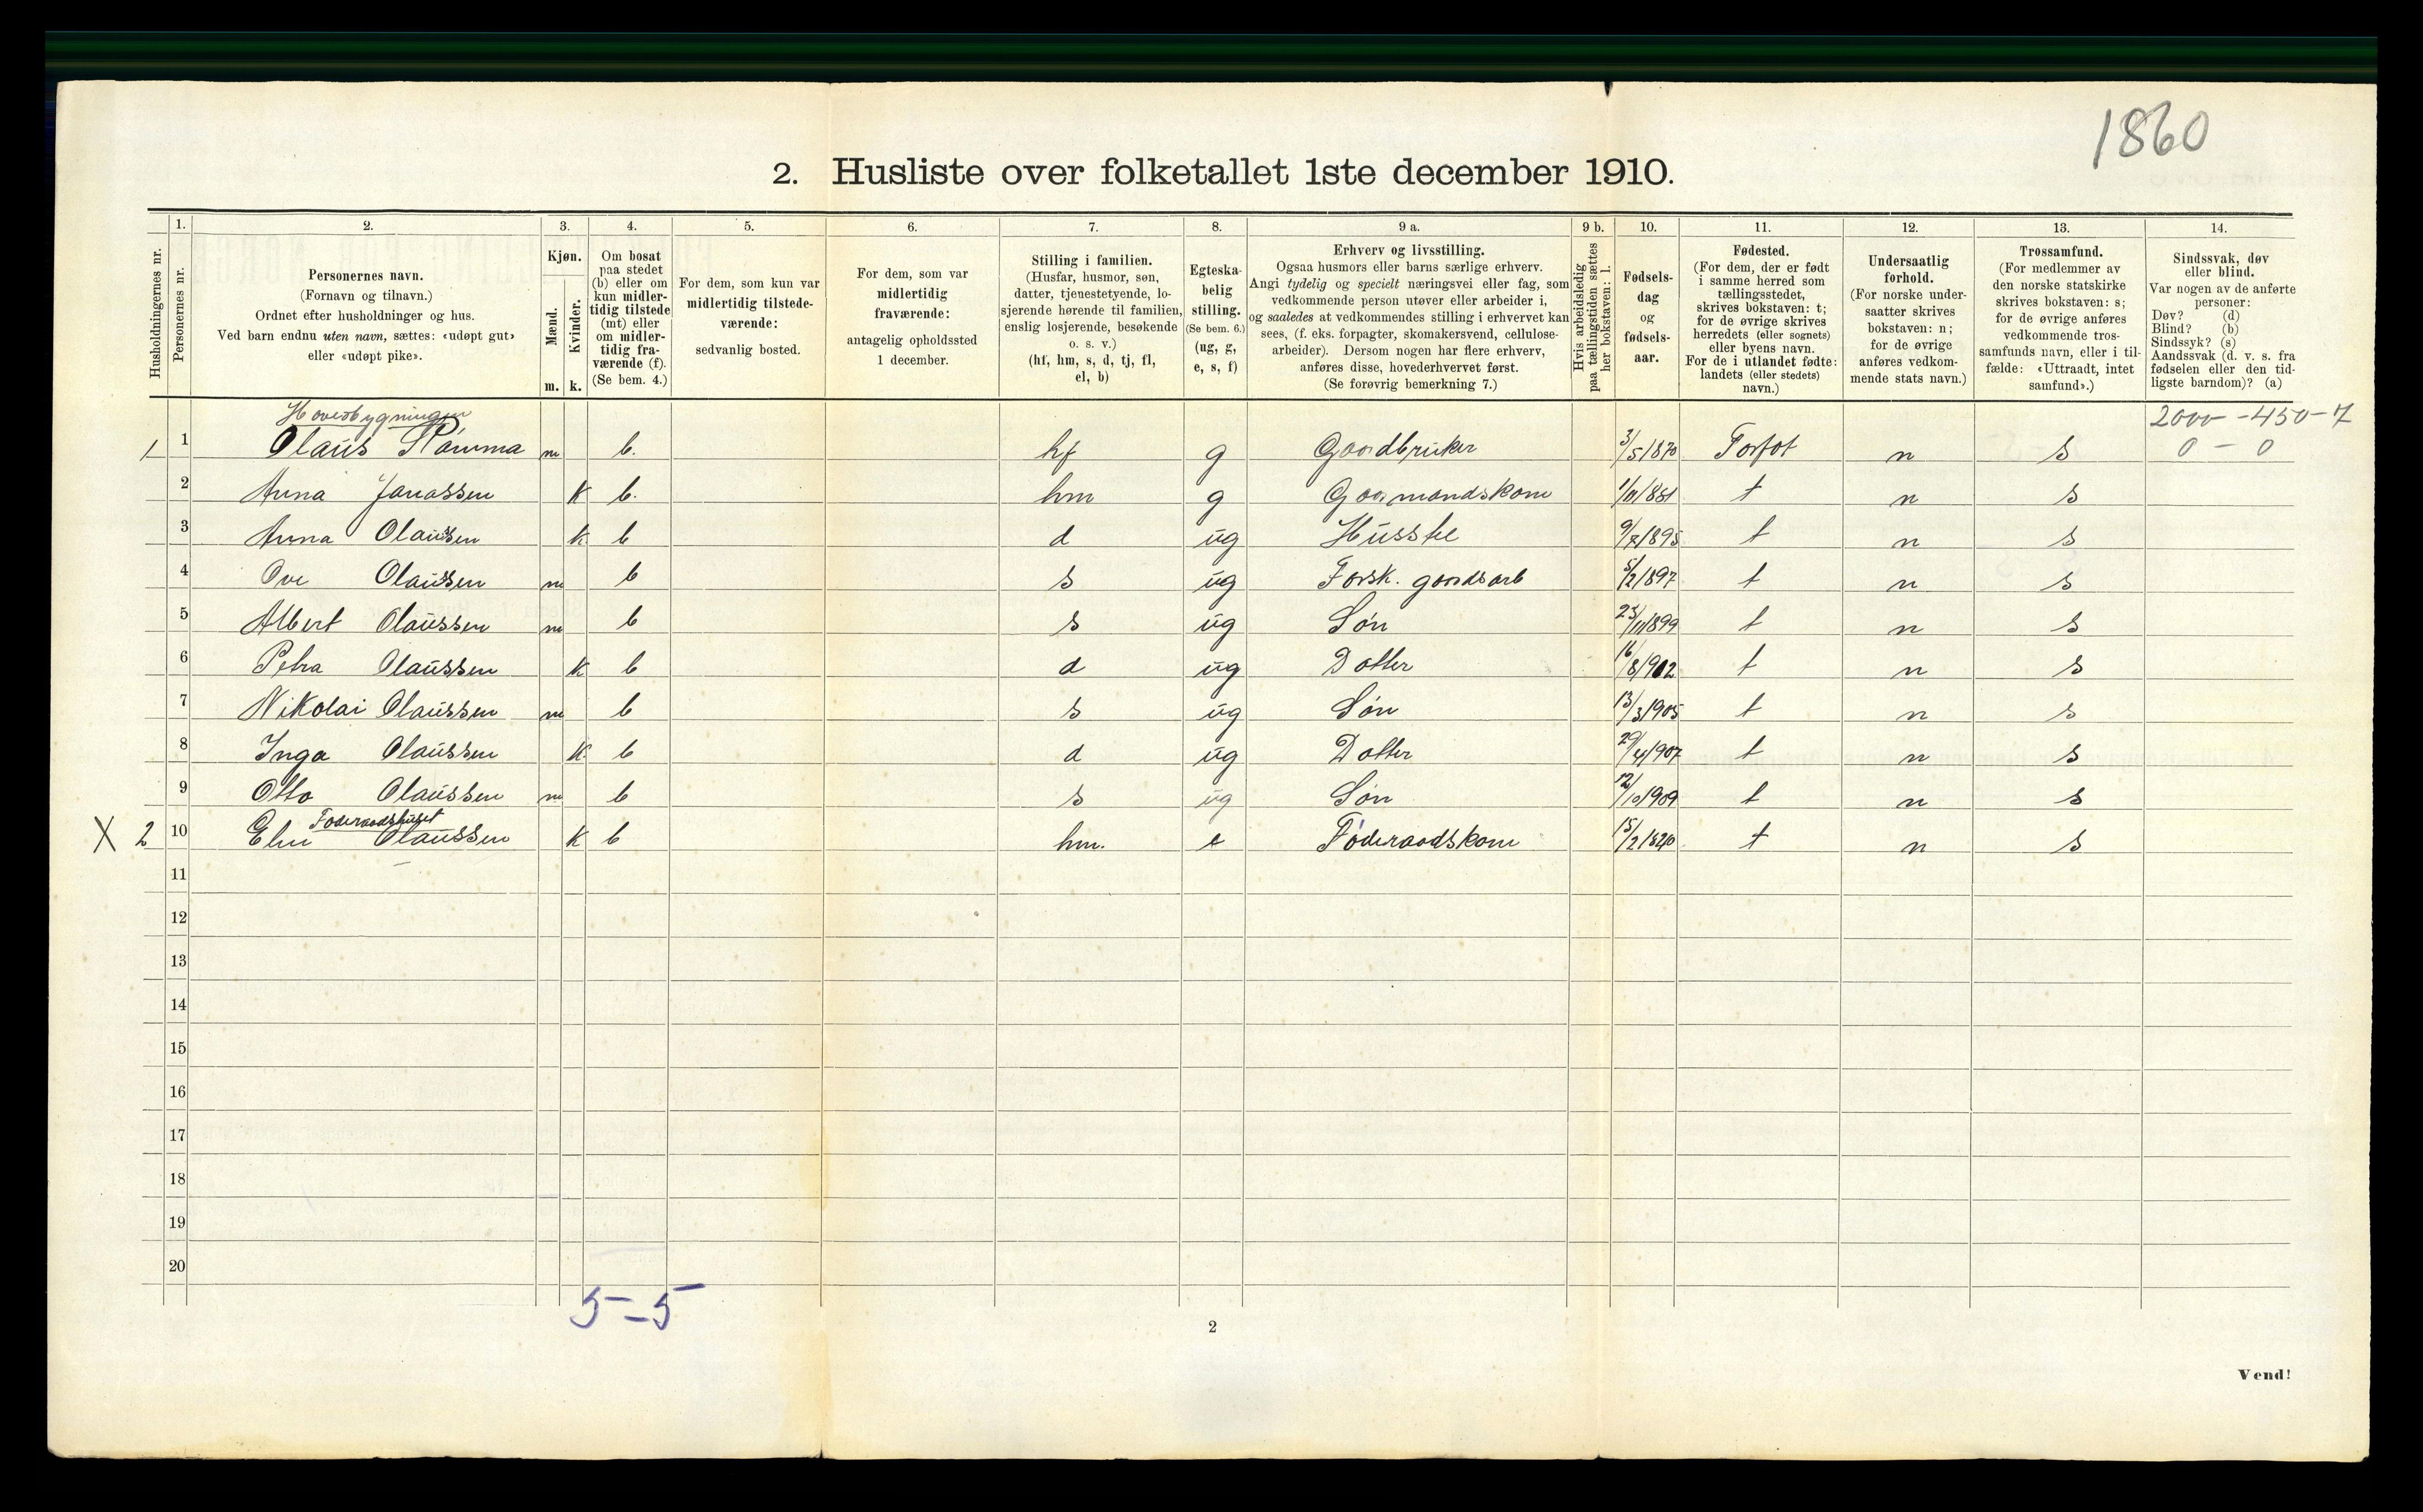 1860
2. Husliste over folketallet 1ste december 1910.
Husholdningernes nr.
1.
Personernes nr.
2.
Personernes navn.
(Fornavn og tilnavn.)
Ordnet efter husholdninger og hus.
Ved barn endnu uten navn, sættes: «udøpt gut»
eller «udøpt pike».
3.
Kjøn.
Mænd.
Kvinder.
m. k.
4.
Om bosat
paa stedet
(b) eller om
kun midler-
tidig tilstede
(mt) eller
om midler-
tidig fra-
værende (f).
(Se bem. 4.)
5.
For dem, som kun var
midlertidig tilstede-
værende:
sedvanlig bosted.
6.
For dem, som var
midlertidig
fraværende:
antagelig opholdssted
1 december.
7.
Stilling i familien.
(Husfar, husmor, søn,
datter, tjenestetyende, lo-
sjerende hørende til familien,
enslig losjerende, besøkende
o. s. v.)
(hf, hm, s, d, tj, fl,
el, b)
8.
Egteska-
belig
stilling.
(Se bem. 6.)
(ug, g,
e, s, f)
9 a.
Erhverv og livsstilling.
Ogsaa husmors eller barns særlige erhverv.
Angi tydelig og specielt næringsvei eller fag, som
vedkommende person utøver eller arbeider i,
og saaledes at vedkommendes stilling i erhvervet kan
sees, (f. eks. forpagter, skomakersvend, cellulose-
arbeider). Dersom nogen har flere erhverv,
anføres disse, hovederhvervet først.
(Se forøvrig bemerkning 7.)
9 b.
Hvis arbeidsledig
paa tællingstiden sættes
her bokstaven: l.
10.
Fødsels-
dag
og
fødsels-
aar.
11.
Fødested.
(For dem, der er født
i samme herred som
tællingsstedet,
skrives bokstaven: t;
for de øvrige skrives
herredets (eller sognets)
eller byens navn.
For de i utlandet fødte:
landets (eller stedets)
navn.)
12.
Undersaatlig
forhold.
(For norske under-
saatter skrives
bokstaven: n;
for de øvrige
anføres vedkom-
mende stats navn.)
13.
Trossamfund.
(For medlemmer av
den norske statskirke
skrives bokstaven: s;
for de øvrige anføres
vedkommende tros-
samfunds navn, eller i til-
fælde: «Uttraadt, intet
samfund».)
14.
Sindssvak, døv
eller blind.
Var nogen av de anførte
personer:
Døv? (d)
Blind? (b)
Sindssyk? (s)
Aandssvak (d. v. s. fra
fødselen eller den tid-
ligste barndom)? (a)
Hovedbygningen
2000 - 450 - 7
1 1 Olaus m b. hf g Gaardbruker 3/5 1870 n s 0 - 0
2 Anna Janassen k b. hm g 1/11/881 t n s
3 Anna Olaussen k b d ug Husstel 9/7 1895 t n s
4 Ove Olaussen m b s ug Forsk. gaardsarb 5/2 1897 t n s
5 Albert Olaussen m b s ug Søn 25/11 1899 t n s
6 Petra Olaussen k b d ug Datter 16/8/902 t n s
7 Nikolai Olaussen m b s ug Søn 13/3 1905 t n s
8 Inga Olaussen k b d ug Datter 29/4/907 t n s
9 Otto Olaussen m b s ug Søn 12/10 1909 t n s
Føderaadshuset
X 2 10 Olaussen k b hm. e Føderaadskone 15/2 1820 t n s
11
12
13
14
15
16
17
18
19
20
5 - 5
2
Vend!